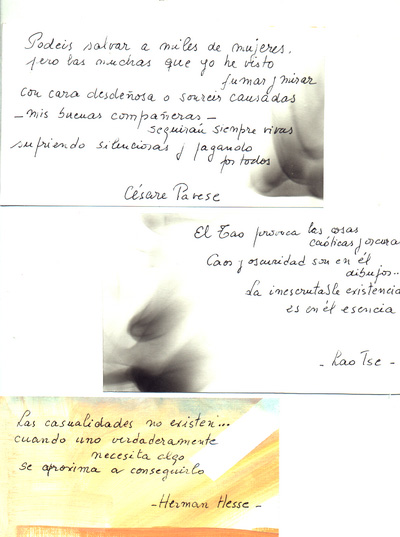 Podeis salvar a miles de mujeres,
pero las muchas que yo he visto
fumar y mirar
con cara desdeñosa o sonreir cansadas
- mis buenas compañeras -
seguirán siempre vivas
sufriendo silenciosas y pagando
por todos
Césare Pavese
El Tao provoca las cosas
caóticas y oscuras
Caos y oscuridad son en él
dibujos...
La inescrutable existencia
es en él esencia
- Lao Tse -
Las casualidades no existen...
cuando uno verdaderamente
necesita algo
se aproxima a conseguirlo
- Herman Hesse -